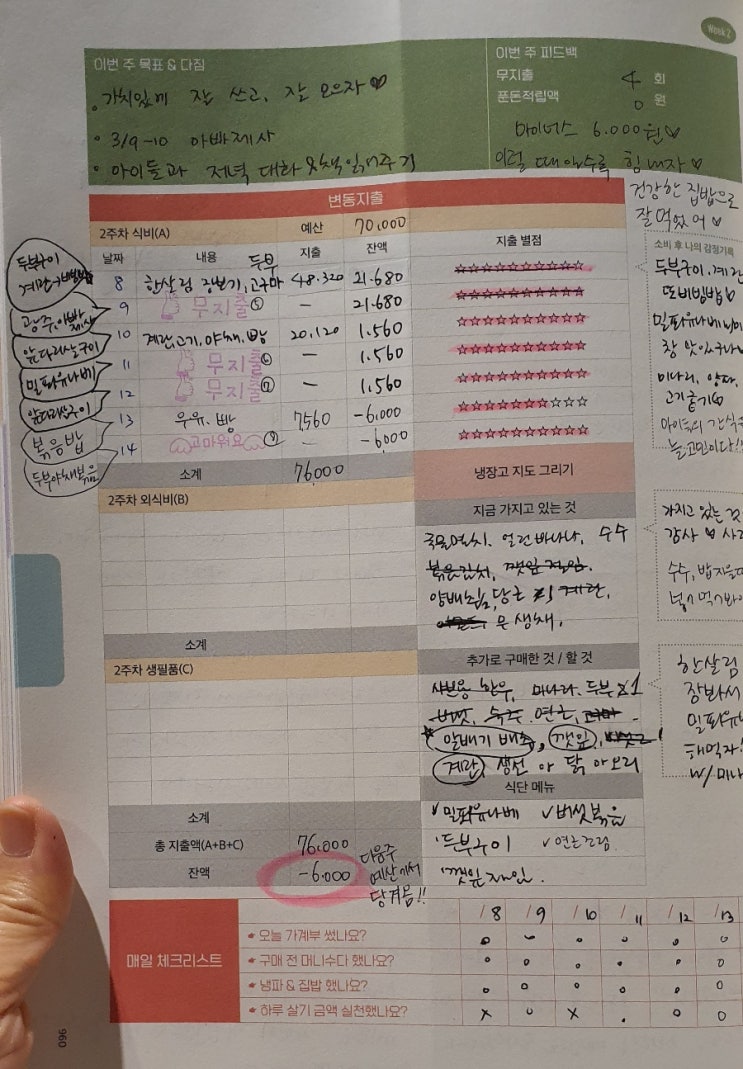 Week 2
이번 주 목표 & 다짐
• 가치있게 잘 쓰고, 잘 모으자♡
• 3/9-10 아빠제사
• 아이들과 저녁 대화 & 책읽어주기
이번 주 피드백
무지출 4 회
푼돈적립액 0 원
마이너스 6.000원♡
이럴 때일수록 힘내자♡
건강한 집밥으로
잘 먹었어♡
변동지출
2주차 식비(A) 예산 70,000
날짜 내용 지출 잔액 지출 별점
두부
8 한살림 장보기, 고구마 48.320 21.680
9 무지출⑤ — 21.680
10 계란,고기,야채,빵 20,120 1.560
11 무지출⑥ — 1.560
12 무지출⑦ — 1,560
13 우유.빵 7560 -6,000
14 고마워요 — -6,000
소계 76,000
두부구이
광주,아빠제사
앞다리살구이
밀파유나베
앞다리살구이
볶음밥
두부야채볶음
소비 후 나의 감정기록
두부구이.계란
또비빔밥♡
밀파유나베
미나리, 앞다
고기굽기♡
아이들의 간식
늘 고민이다!!
냉장고 지도 그리기
지금 가지고 있는 것
국물멸치. 얼린바나나. 수수
볶은김치, 깻잎
양배추, 당근 계란.
무생채.
가지고 있는 것
감사♡
수수, 밥지을때
추가로 구매한 것 / 할 것
한우, 미나리. 두부 x1
버섯, 숙주. 연근,
알배기 배추, 깻잎,
계란, 생선 or 닭 or 오리
한살림
장봐서
밀파유나
해먹자!
w/미나
2주차 외식비(B)
소계
2주차 생필품(C)
소계
총 지출액(A+B+C) 76,000
잔액 -6.000
다음주
예산에서
당겨옴!!
식단 메뉴
✓밀파유나베 ✓버섯볶음
두부구이 ✓연근조림
매일 체크리스트
/8 /9 /10 /11 /12 /13
오늘 가계부 썼나요?
구매 전 머니수다 했나요?
냉파 & 집밥 했나요?
하루 살기 금액 실천했나요? x o x . o o
096